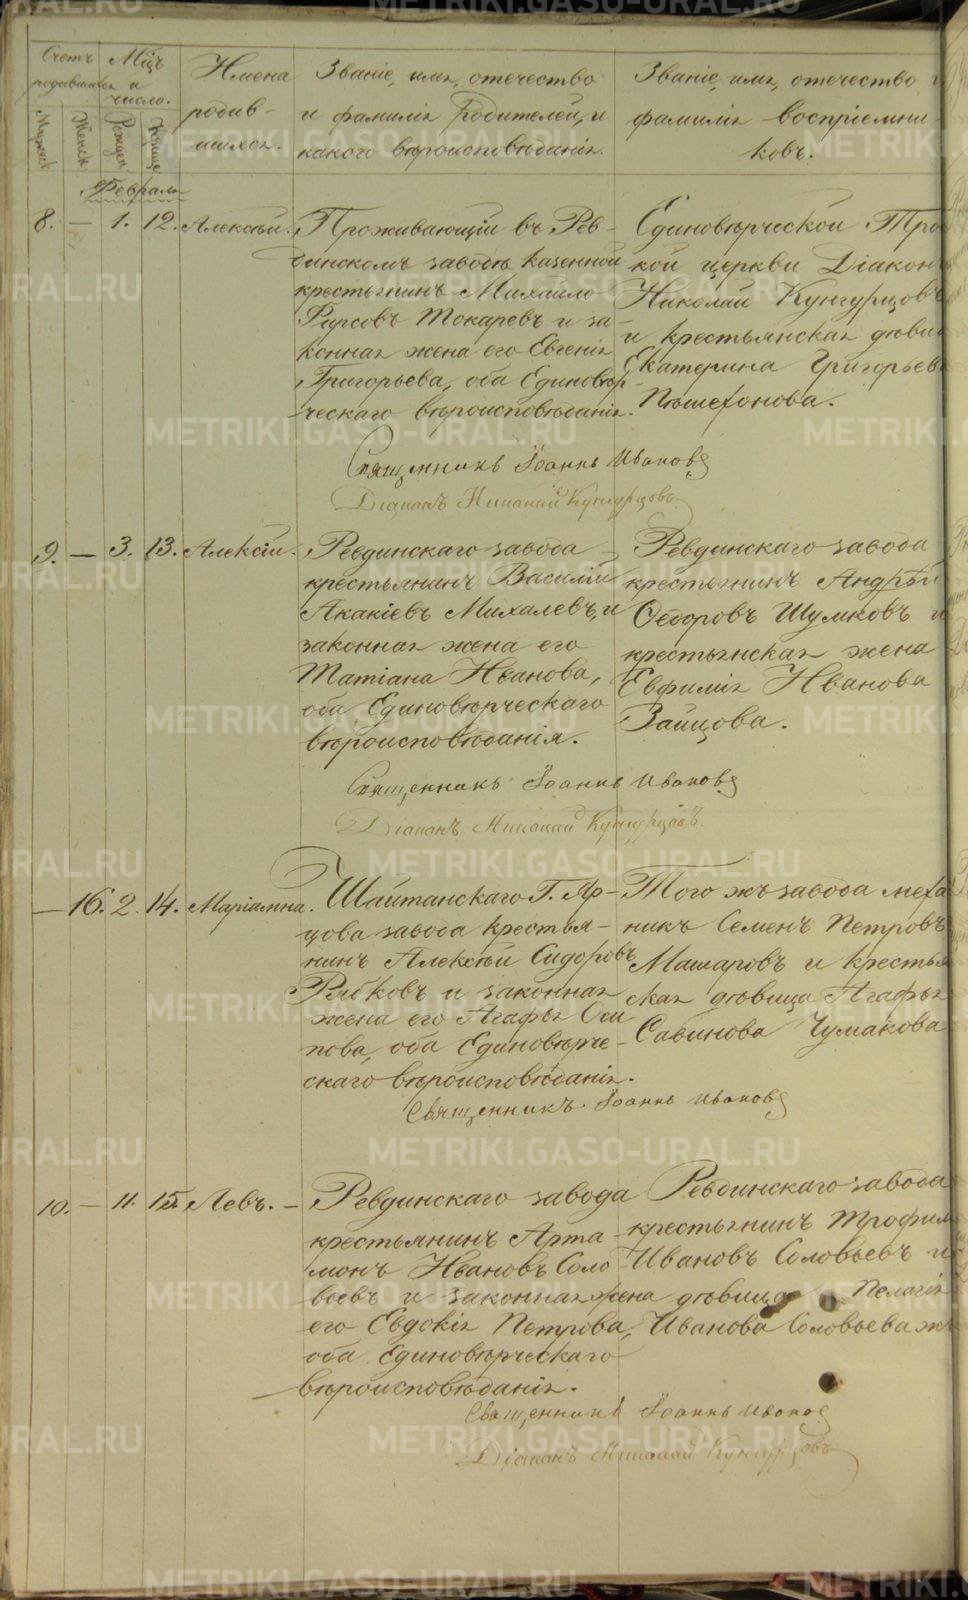 Счетъ родившихся
Мѣсяцъ и число.
Имена родившихся.
Званіе, имя, отечество и фамилія родителей, и какого вѣроисповѣданія.
Званіе, имя, отечество и фамилія воспріемниковъ.
Мужеск. Женск. Рожден. Крещ.
Февраля
8. — 1. 12. Алексѣй.
Проживающій въ Рев-
динскомъ заводѣ казенной
крестьянинъ Михаило
Фирсовъ Токаревъ и за-
конная жена его Евгенія
Григорьева, оба Единовѣр-
ческаго вѣроисповѣданія.
Единовѣрческой Трои
кой церкви Діакон
Николай Кунгурцовъ
и крестьянская дѣви
Екатерина Григорьев
Пѣшехонова.
Священникъ Іоаннъ Ивановъ
Діаконъ Николай Кунгурцовъ
9. — 3. 13. Алексій.
Ревдинскаго завода
крестьянинъ Василій
Акакіевъ Михалевъ, и
законная жена его
Татіана Иванова,
оба Единовѣрческаго
вѣроисповѣданія.
Ревдинскаго завода
крестьянинъ Андрѣй
Ѳедоровъ Шумковъ и
крестьянская жена
Евфимія Иванова
Зайцова.
Священникъ Іоаннъ Ивановъ
Діаконъ Николай Кунгурцовъ.
— 16. 2. 14. Маріамна.
Шайтанскаго Г. Яр-
цова завода крестья-
нинъ Алексѣй Сидоровъ
Рябковъ и законная
жена его Агафья Оси
пова, оба Единовѣрче-
скаго вѣроисповѣданія.
Того жъ завода меха
никъ Семенъ Петровъ
Машаровъ и крестья
ская дѣвица Агафья
Савинова Чумакова
Священникъ Іоаннъ Ивановъ
10. — 11. 15. Левъ. —
Ревдинскаго завода
крестьянинъ Арта
монъ Ивановъ Соло
вьевъ и законная жена
его Евдокія Петрова,
оба Единовѣрческаго
вѣроисповѣданія.
Ревдинскаго завода
крестьянинъ Трофим
Ивановъ Соловьевъ и
дѣвица Пелагія
Иванова Соловьева ж
Священникъ Іоаннъ Ивановъ
Діаконъ Николай Кунгурцовъ
METRIKI.GASO-URAL.RU